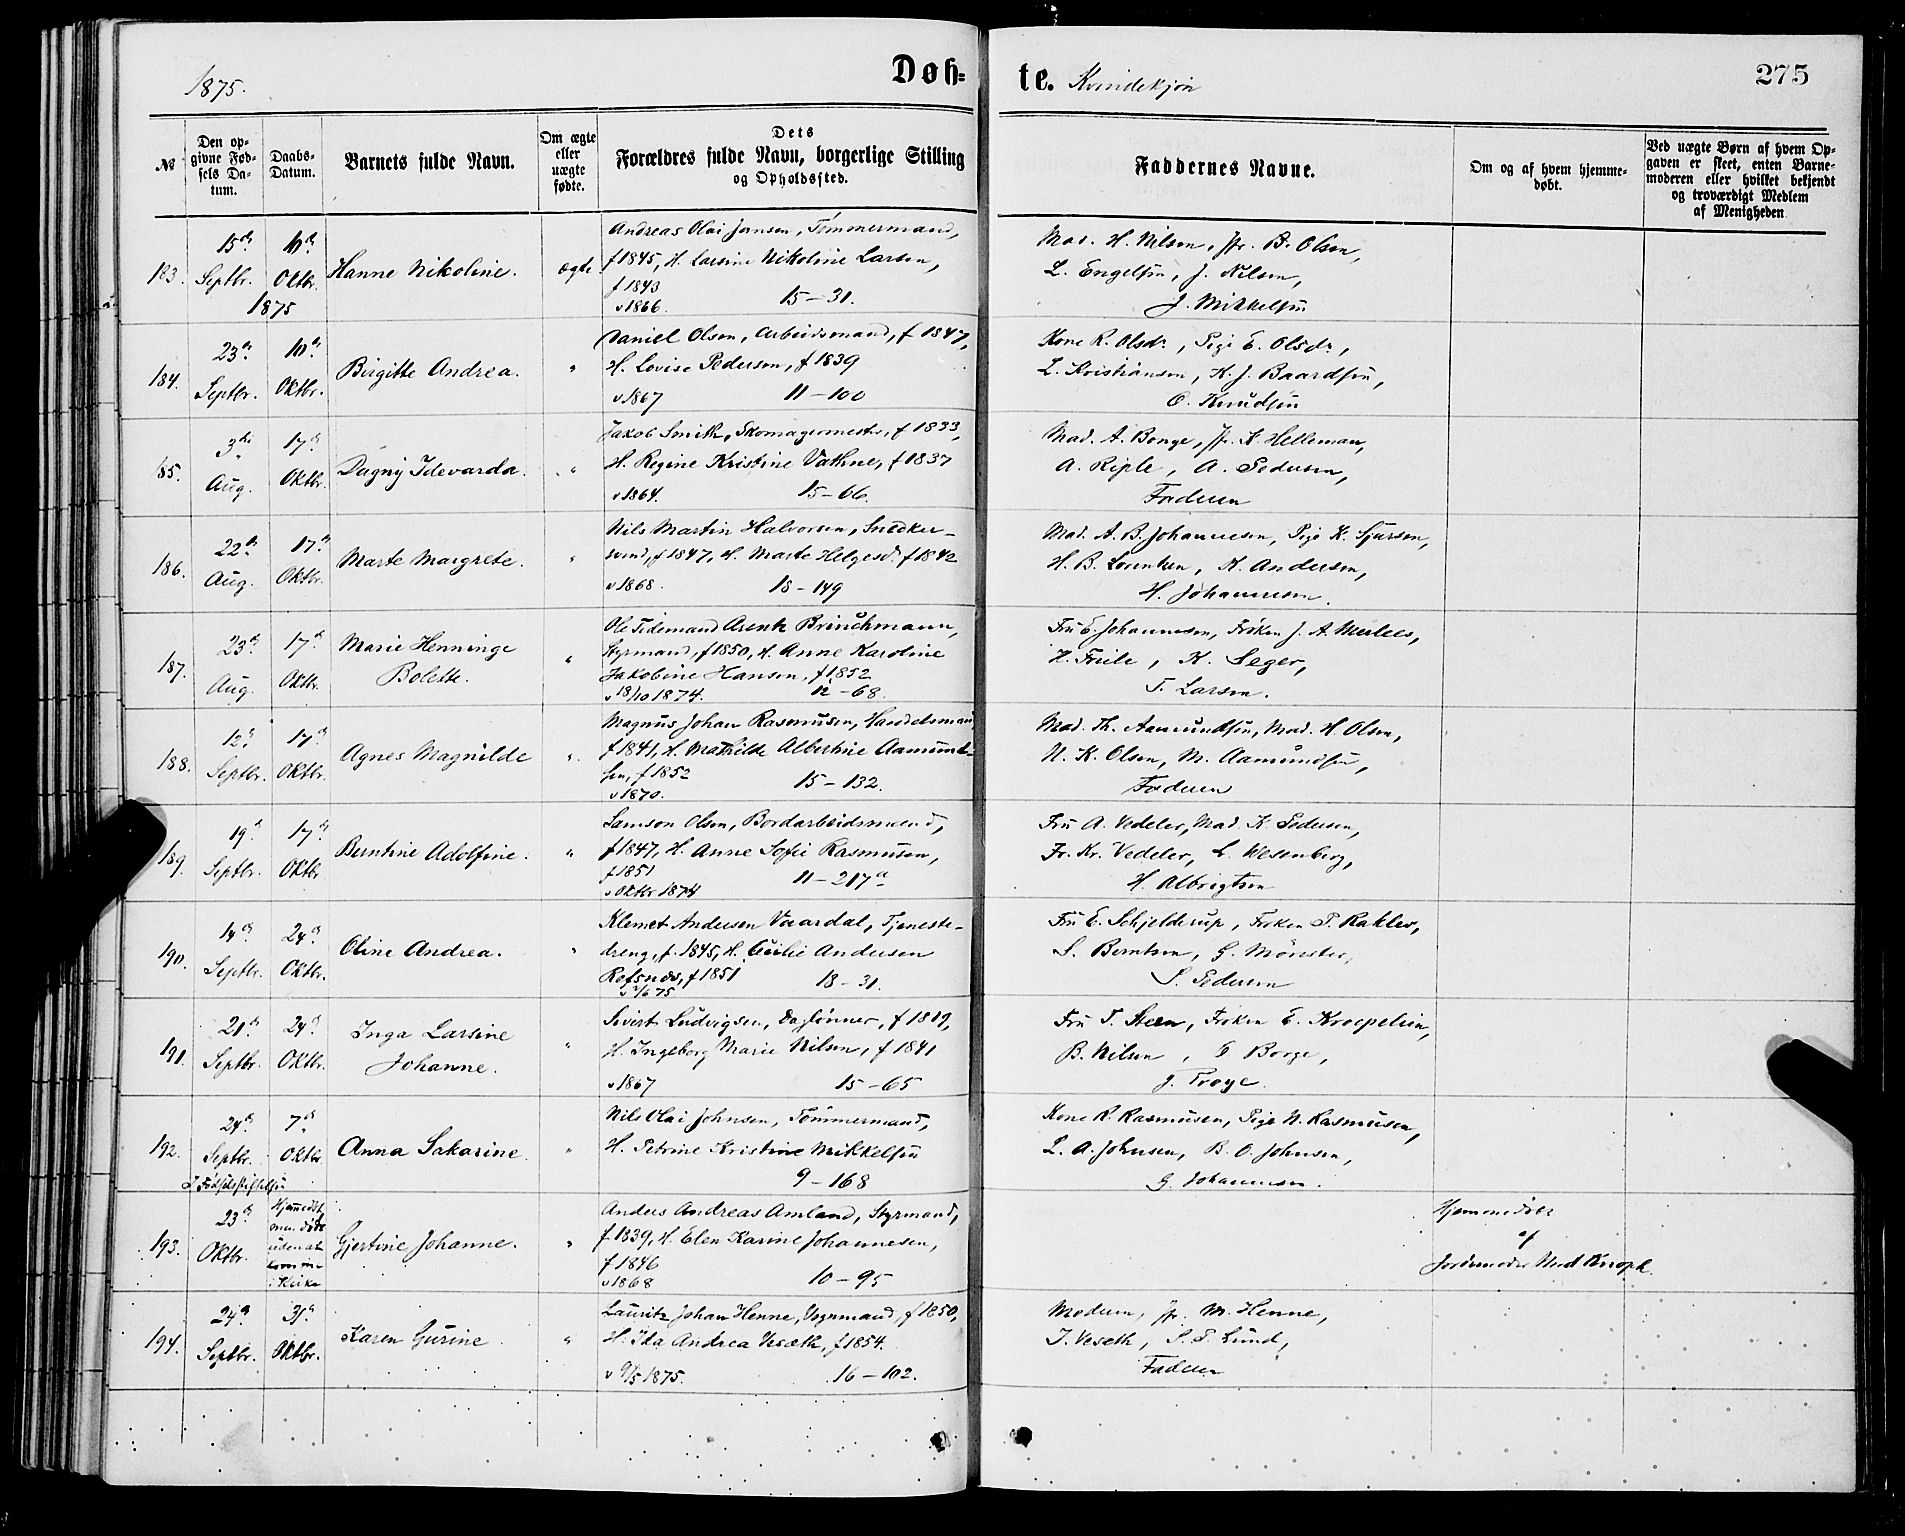 1875.
Døb-
te. Kvindekjøn
275
№
Den op-
givne Fød-
sels Da-
tum.
Daabs-
Datum.
Barnets fulde Navn.
Om ægte
eller
uægte
fødte.
Dets
Forældres fulde Navn, borgerlige Stilling
og Opholdssted.
Faddernes Navne.
Om og af hvem hjemme-
døbt.
Ved uægte Børn af hvem Op-
gaven er skeet, enten Barne-
moderen eller hvilket bekjendt
og troværdigt Medlem
af Menigheden
183.
15de Septbr.
10de Oktbr.
1875
Hanne Nikoline.
ægte
Andreas Olai Jansen, Tömmermand,
f 1845, H. Larsine Nikoline Larsen,
f 1843
v 1866. 15-31.
Mad. H. Nilsen, Jfr. B. Olsen,
L. Engelsen, J. Nilsen,
J. Mikkelsen
184.
23de Septbr.
10de Oktbr.
Birgitte Andrea.
"
Daniel Olsen, Arbeidsmand, f 1847,
H. Lovise Pedersen, f 1839
v 1867 11-100
Kone R. Olsdr, Pige E. Olsdr,
L. Kristiansen, H. J. Baardsen,
O. Knudsen
185.
3die Aug.
17de Oktbr.
Dagny Idevarda.
"
Jakob Smith, Skomagermester, f 1833,
H. Regine Kristine Vathne, f 1837
v 1864. 15-66.
Mad. A. Bonge, Jfr. K. Helleman,
A. Riple, A. Pedersen,
Faderen
186.
22de Aug.
17de Oktbr.
Marte Margrete.
"
Nils Martin Halvorsen, Snedker-
svend, f 1847, H. Marte Helgesd. f 1842
v 1868. 18-149
Mad. A. B. Johannesen, Pige K. Sjursen,
H. B. Lorentzen, K. Andersen,
H. Johannesen.
187.
23de Aug.
17de Oktbr.
Marie Henninge
Bolette.
"
Ole Tidemand Arentz Brinchmann,
Styrmand, f 1850, H. Anne Karoline
Jakobine Hansen, f 1852
v 18/10 1874. 12-68.
Fru E. Johannesen, Fröken J. A. Meslees,
H. Friele, K. Seger,
T. Larsen.
188.
12te Septbr.
17de Oktbr.
Agnes Magnilde
"
Magnus Johan Rasmusen, Handelsmand
f 1841, H. Mathilde Albertine Aamund-
sen, f 1852
v 1870. 15-132.
Mad. Th. Aamundsen, Mad. H. Olsen,
N. K. Olsen, M. Aamundsen,
Faderen
189.
19de Septbr.
17de Oktbr.
Berntine Adolfine.
"
Samson Olsen, Bordarbeidsmand,
f 1847, H. Anne Sofie Rasmusen,
f 1851
v Oktbr 1874 11-217a
Fru A. Vedeler, Mad. K. Pedersen,
Fr. Kr. Vedeler, L. Wesenberg,
H. Albrigtsen
190.
14de Septbr.
24de Oktbr.
Oline Andrea.
"
Klemet Andersen Vaardal, Tjeneste-
dreng, f. 1845, H. Cecilie Andersen
Refsnes, f 1851 18-31.
v 2/6 75
Fru E. Schjelderup, Fröken T. Rakler,
S. Berntsen, G. Mönster,
S. Pedersen
191.
21de Septbr.
24de Oktbr.
Inga Larsine
Johanne.
"
Sivert Ludvigsen, Daglönner, f 1819,
H. Ingeborg Marie Nilsen, f 1841
v 1867 15-65
Fru T. Steen, Fröken E. Kroepelien,
B. Nilsen, E Borge,
J. Troye.
192.
24de Septbr.
I Födselsstiftelsen
7de Oktbr.
Anna Sakarine.
"
Nils Olai Johnsen, Tömmermand,
H. Petrine Kristine Mikkelsen
9-168
Kone R. Rasmusen, Pige N. Rasmusen,
L. A. Johnsen, B. O. Johnsen,
G. Johannesen.
193.
23de Oktbr.
Hjemmedöbt
men döde
uden at
komme
i Kirke
Gjertine Johanne.
"
Anders Andreas Amland, Styrmand,
f 1839, H. Elen Karine Johannesen,
f 1846
v 1868 10-95
Hjemmedöbt
af
Jordemoder Mad Knoph.
194.
24de Septbr.
31de Oktbr.
Karen Gurine
"
Lauritz Johan Henne, Vognmand, f 1850,
H. Ida Andrea Veseth, f 1854.
v 9/5 1875. 16-102.
Moderen, Jfr. M. Henne,
J. Veseth, S. P. Lund,
Faderen